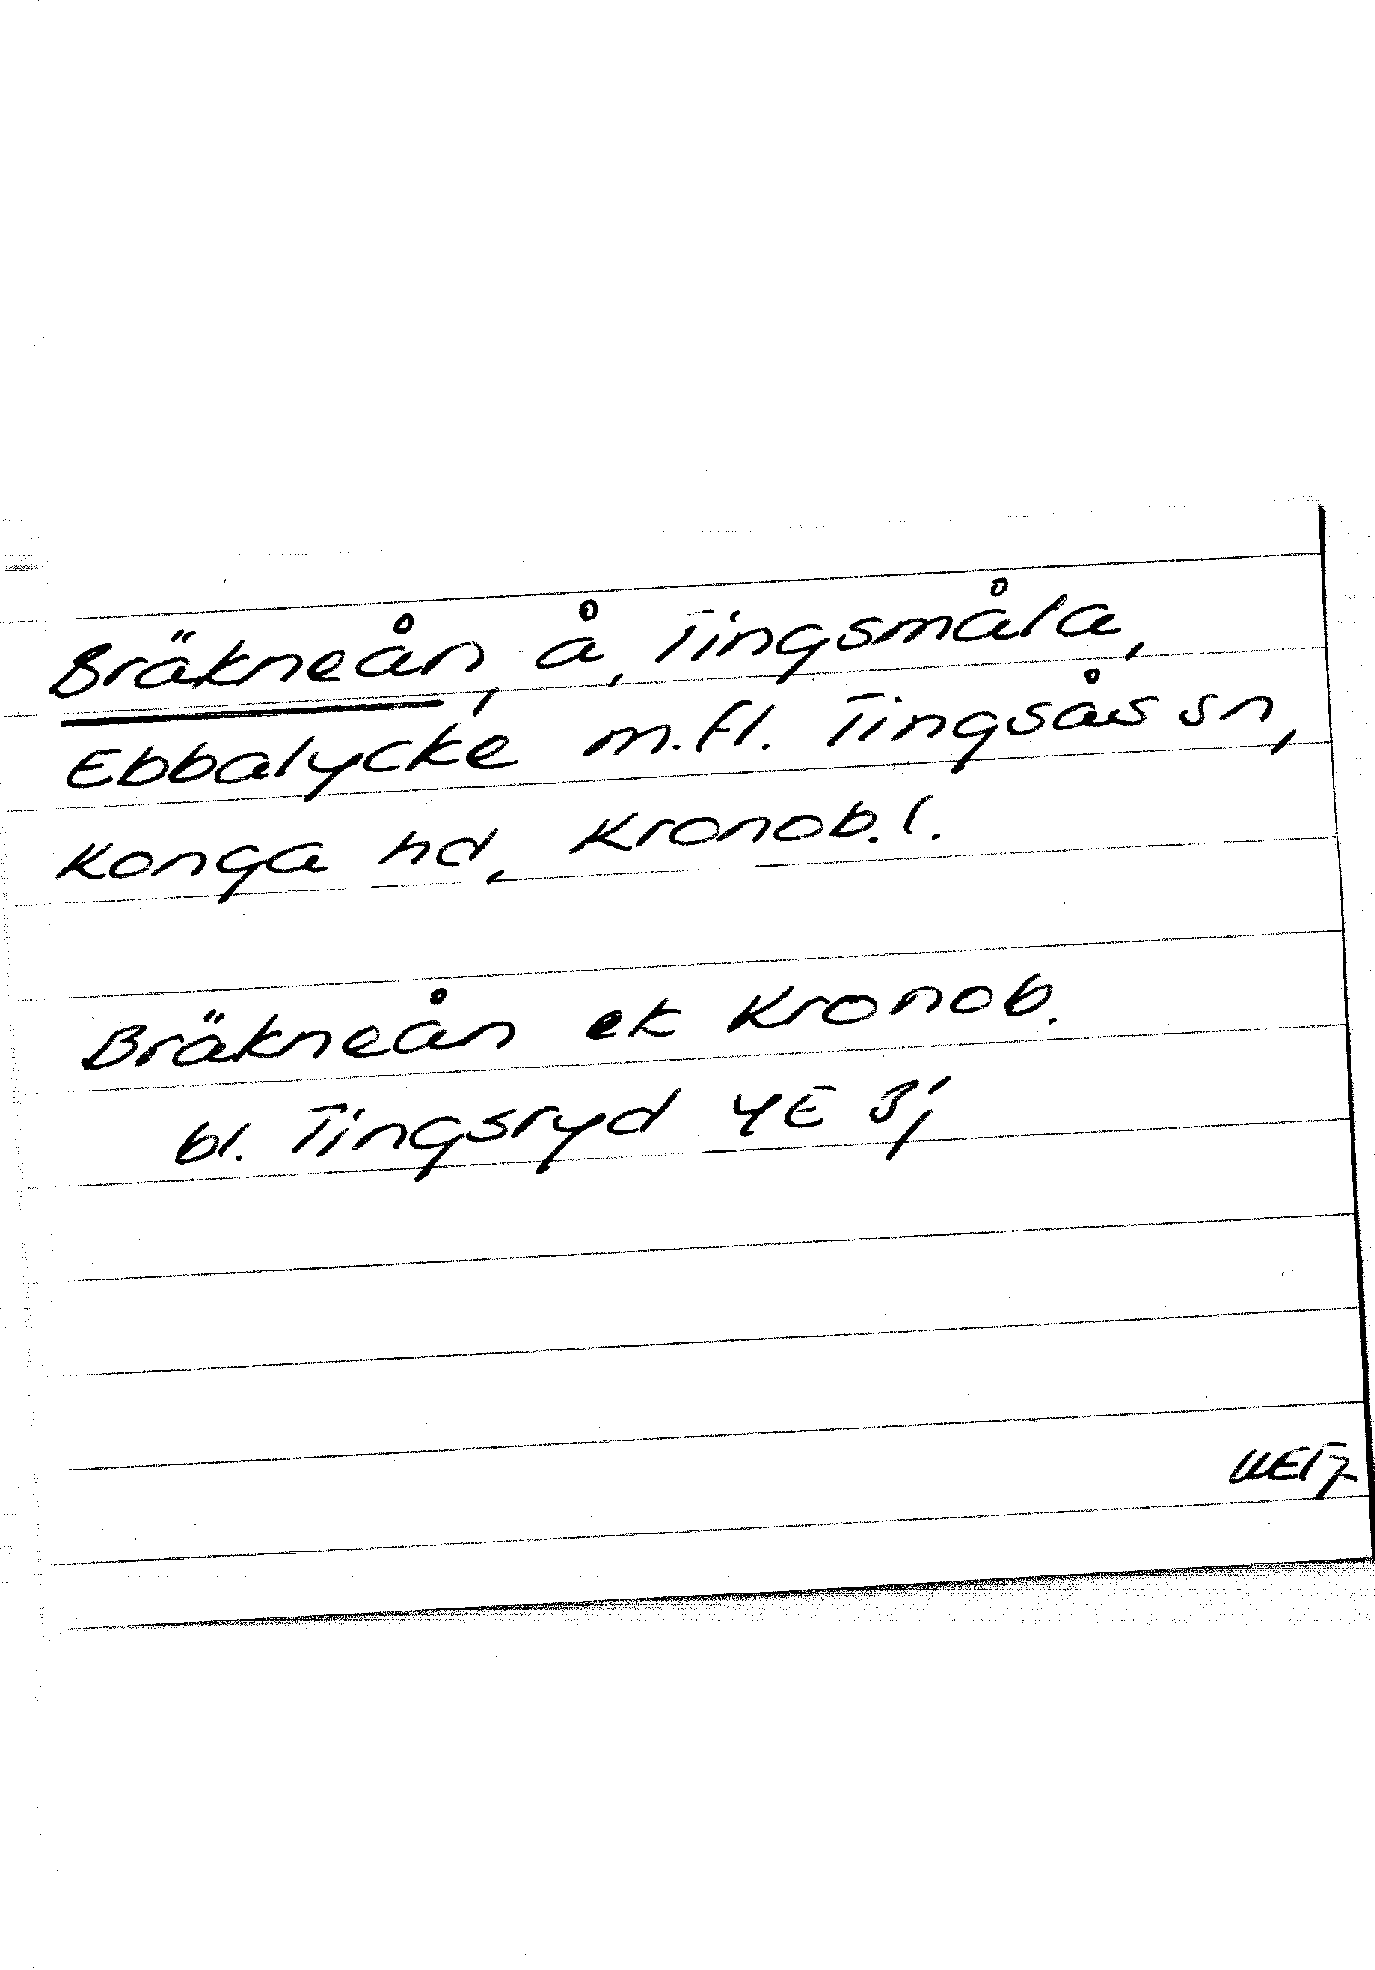 Bräkneån, å, Tingsmåla,
Ebbalycke m.fl. Tingsås sn,
Konga hd, Kronob. l.
Bräkneån ek Kronob.
bl. Tingsryd 4E 3j